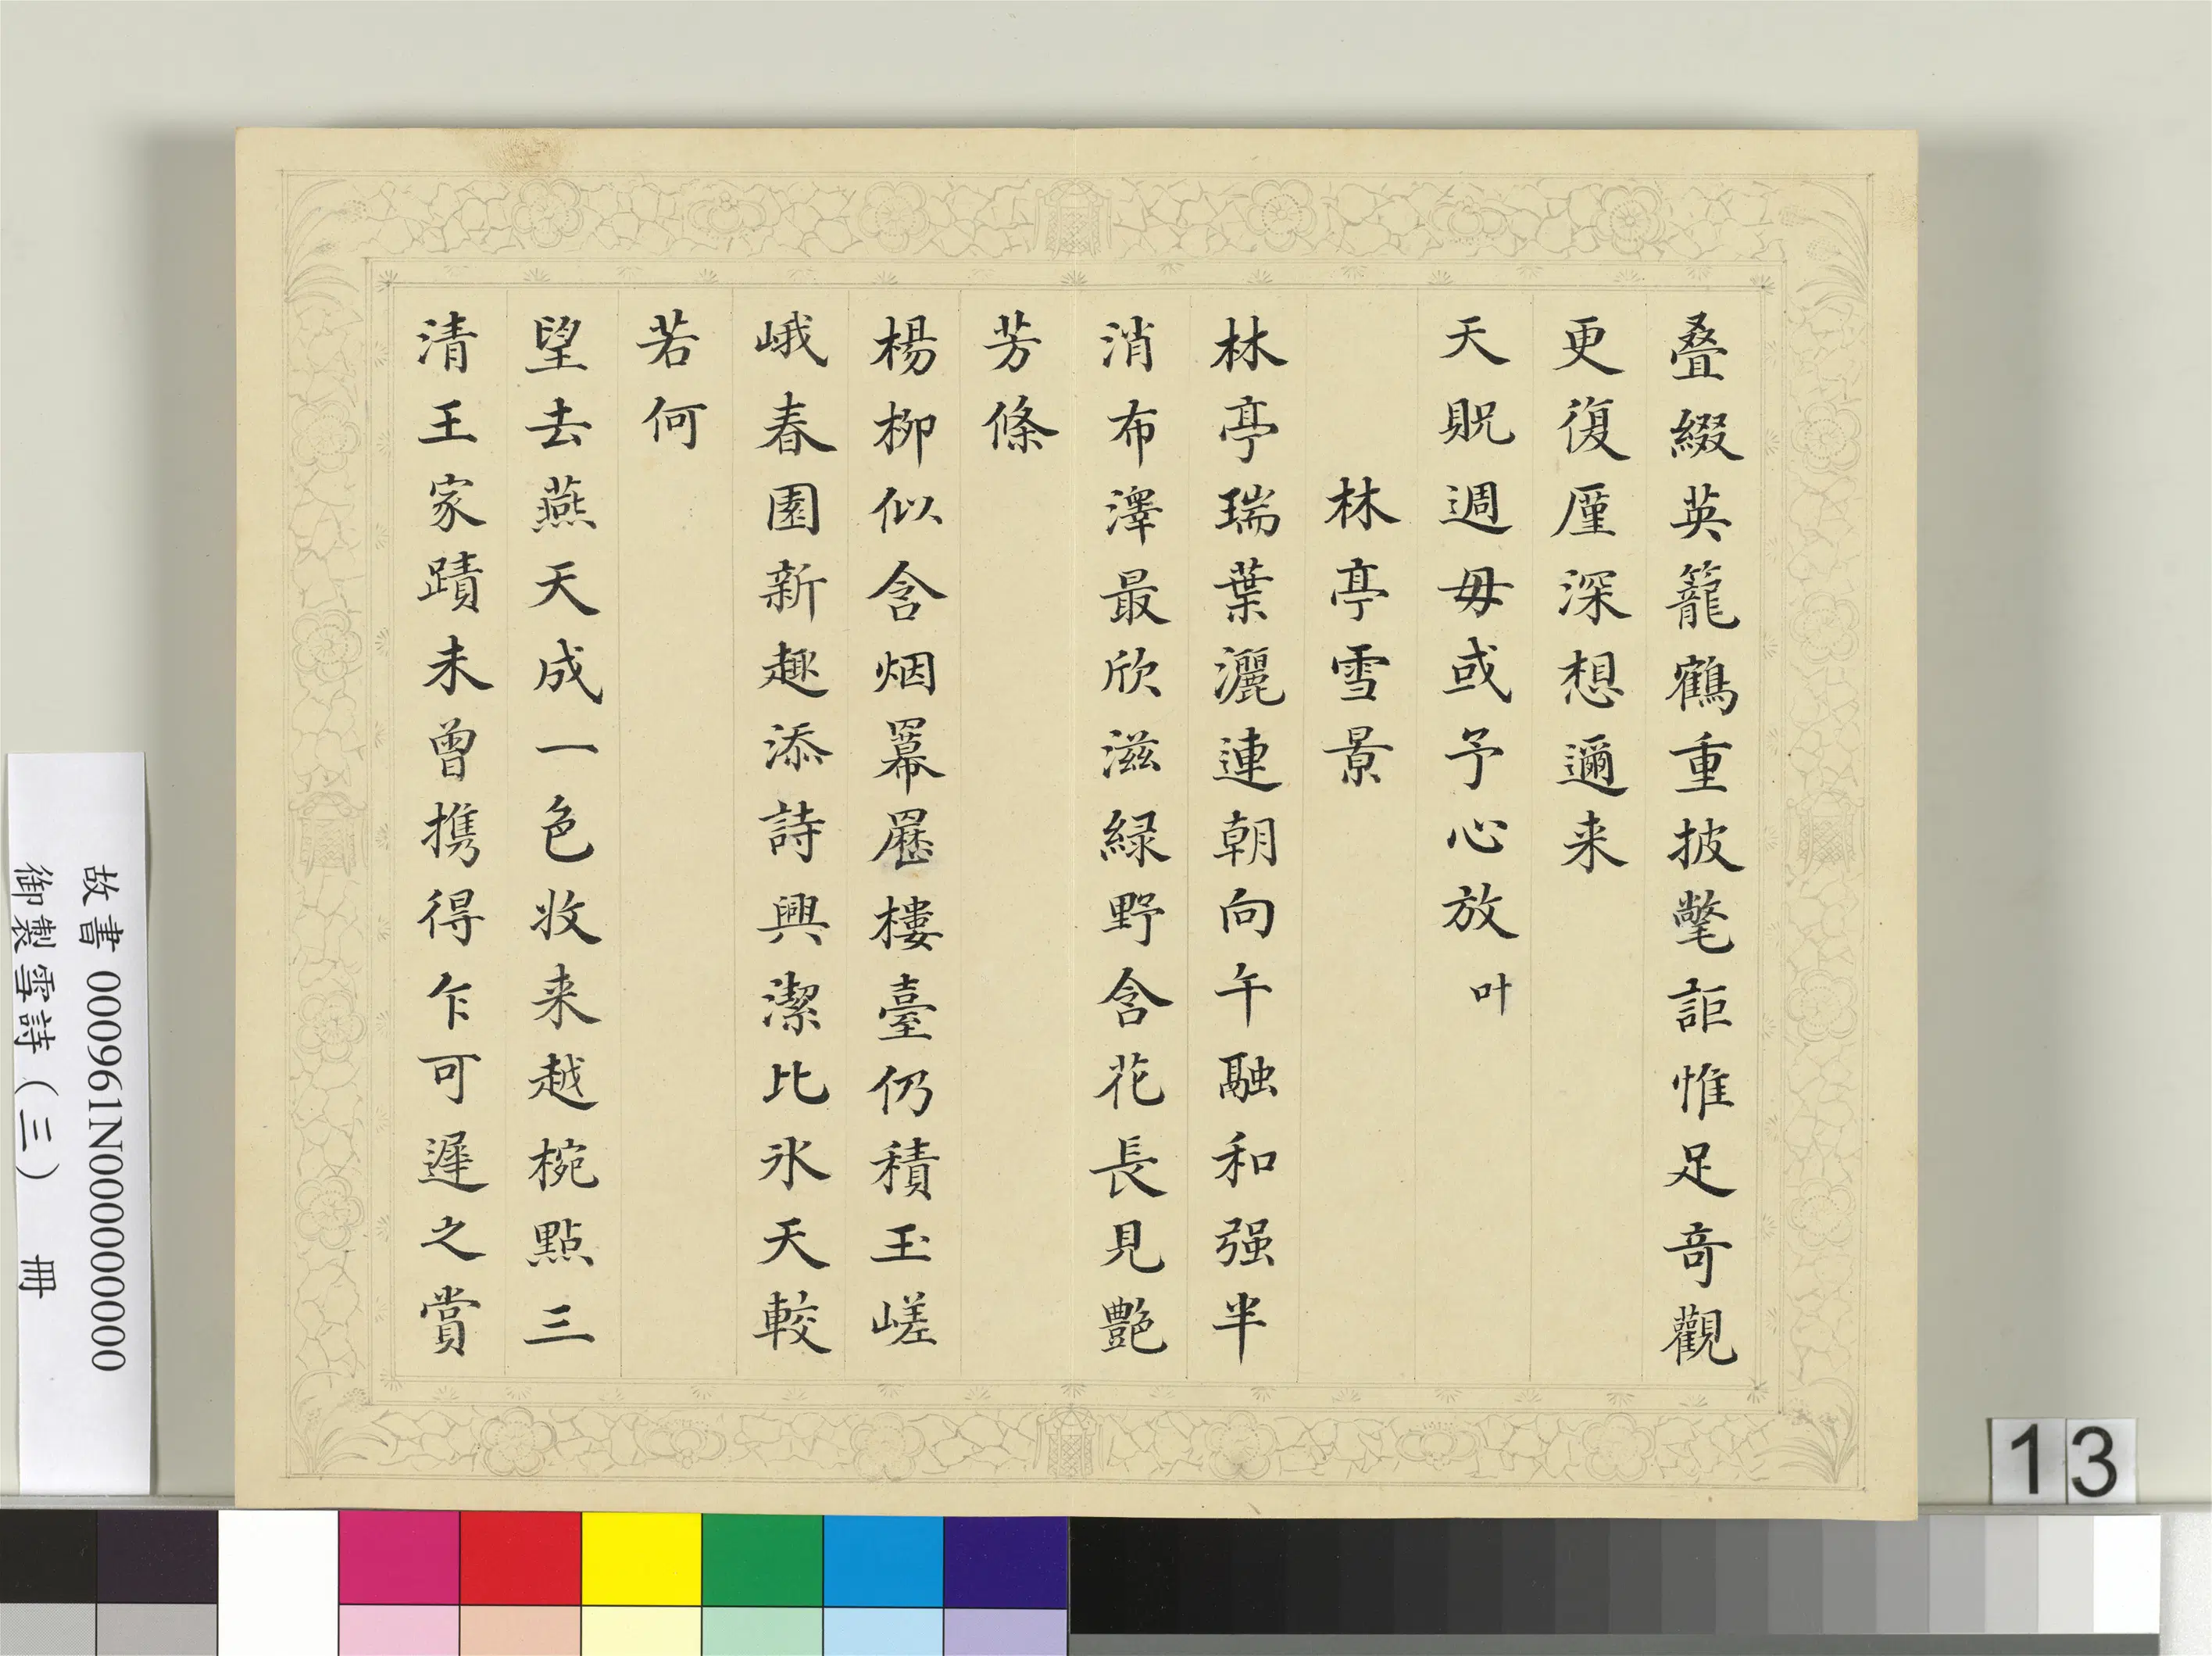 叠綴英籠鶴重披氅詎惟足竒觀
更復厪深想邇来
天貺週毋或予心放叶
林亭雪景
林亭瑞葉灑連朝向午融和强半
消布澤最欣滋緑野含花長見艶
芳條
楊柳似含烟羃𦋅樓臺仍積玉嵯
峨春園新趣添詩興潔比氷天較
若何
望去燕天成一色收来越椀點三
清王家蹟未曾携得乍可遲之賞
故書 000961N000000000
御製雪詩（三） 冊
13